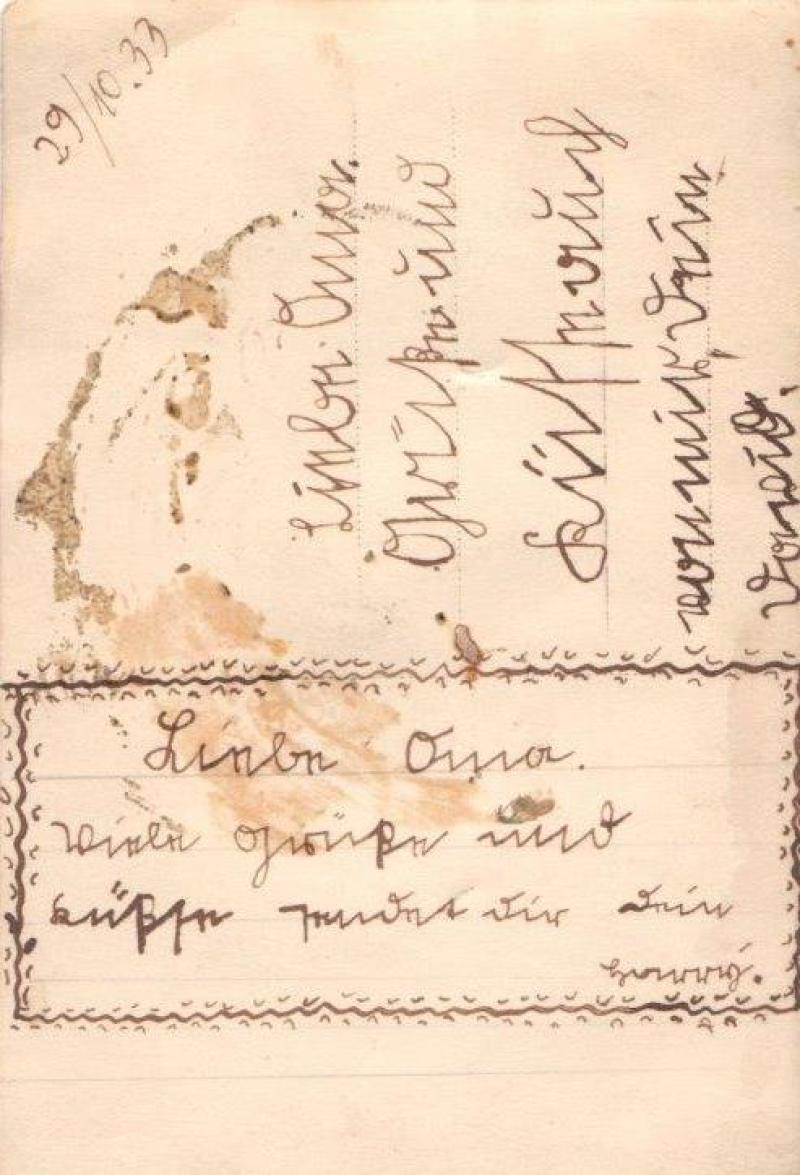 29/10.33
Liebe Oma.
Grüße und
Küsse auch
von mir, Dein
David.
Liebe Oma.
Viele Grüße und
Küßse sendet dir dein
Harry.